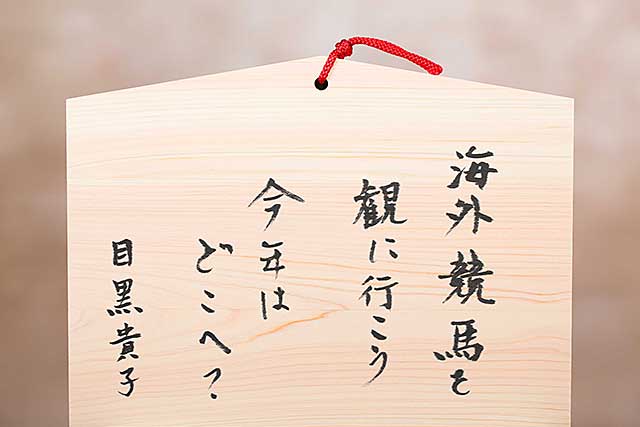 海外競馬を
観に行こう
今年は
どこへ?
目黒貴子